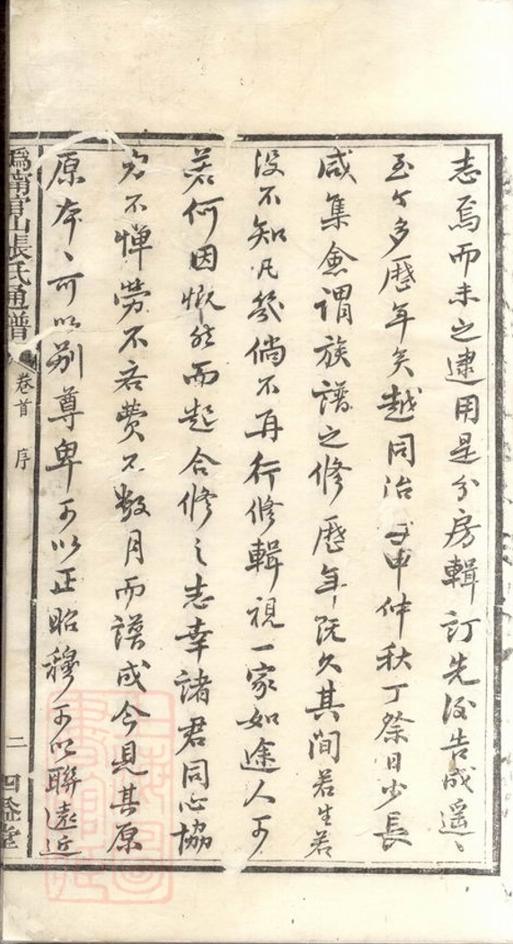 志焉而未之逮用是分房輯訂先後告成遥〻
至今多歷年矣越同治壬申仲秋丁祭日少長
咸集僉謂族譜之修歷年既久其間若生若
没不知凡幾倘不再行修輯視一家如途人可
若何因慨然而起合修之志幸諸君同心協
力不憚勞不吝費不数月而譜成今見其原
原本〻可以别尊卑可以正昭穆可以聯遠近
南官山張氏通譜
卷首 序
二